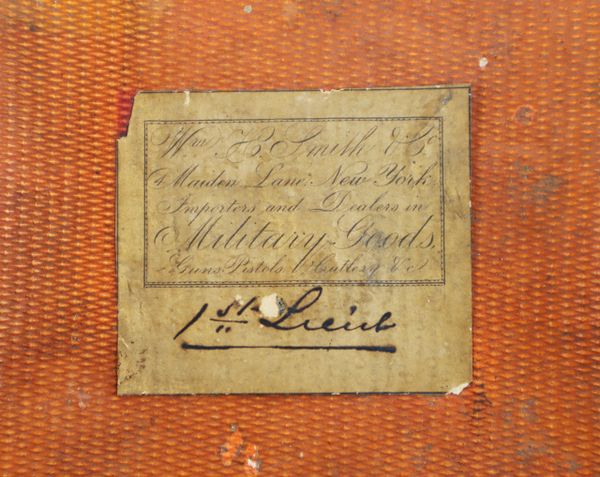 Wm H. Smith & Co
4 Maiden Lane, New York,
Importers and Dealers in
Military Goods,
Guns, Pistols, Cutlery &c
1st Lieut